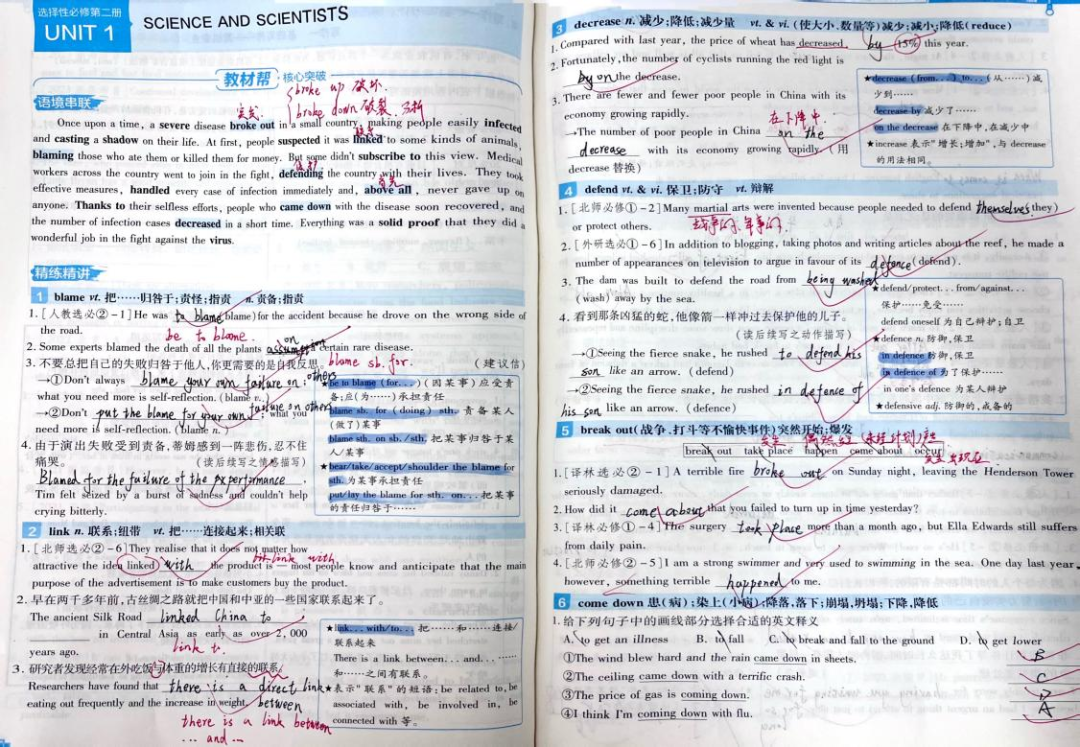 选择性必修第二册
UNIT 1
SCIENCE AND SCIENTISTS
教材帮 核心突破
broke up 破坏
语境串联
broke down 破裂, 分析
Once upon a time, a severe disease broke out in a small country, making people easily infected
and casting a shadow on their life. At first, people suspected it was linked to some kinds of animals,
blaming those who ate them or killed them for money. But some didn't subscribe to this view. Medical
workers across the country went to join in the fight, defending the country with their lives. They took
effective measures, handled every case of infection immediately and, above all, never gave up on
anyone. Thanks to their selfless efforts, people who came down with the disease soon recovered, and
the number of infection cases decreased in a short time. Everything was a solid proof that they did a
wonderful job in the fight against the virus.
精练精讲
1 blame vt. 把……归咎于;责怪;指责 n. 责备;指责
1. [人教选必②-1] He was to blame (blame) for the accident because he drove on the wrong side of
the road.
be to blame.
2. Some experts blamed the death of all the plants on a certain rare disease.
3. 不要总把自己的失败归咎于他人,你更需要的是自我反思。 (建议信)
blame sb. for.
→①Don't always blame your own failure on others;
what you need more is self-reflection. (blame v.)
→②Don't put the blame for your own failure on others; what you
need more is self-reflection. (blame n.)
4. 由于演出失败受到责备,蒂姆感到一阵悲伤,忍不住
痛哭。 (读后续写之情感描写)
Blamed for the failure of the performance,
Tim felt seized by a burst of sadness and couldn't help
crying bitterly.
★be to blame (for...) (因某事)应受责
备;应(为……)承担责任
blame sb. for (doing) sth. 责备某人
(做了)某事
blame sth. on sb./sth. 把某事归咎于某
人/某事
★bear/take/accept/shoulder the blame for
sth. 为某事承担责任
put/lay the blame for sth. on... 把某事
的责任归咎于……
2 link n. 联系;纽带 vt. 把……连接起来;相关联
1. [北师选必②-6] They realise that it does not matter how
attractive the idea linked with the product is — most people know and anticipate that the main
purpose of the advertisement is to make customers buy the product.
2. 早在两千多年前,古丝绸之路就把中国和中亚的一些国家联系起来了。
The ancient Silk Road linked China to
in Central Asia as early as over 2,000
years ago.
link to.
3. 研究者发现经常在外吃饭与体重的增长有直接的联系。
Researchers have found that there is a direct link between
eating out frequently and the increase in weight.
there is a link between
... and ...
★link... with/to... 把……和……连接/
联系起来
There is a link between... and... ……
和……之间有联系。
★表示“联系”的短语: be related to, be
associated with, be involved in, be
connected with 等。
3 decrease n. 减少;降低;减少量 vt. & vi. (使大小、数量等)减少;减小;降低(reduce)
1. Compared with last year, the price of wheat has decreased by 15% this year.
2. Fortunately, the number of cyclists running the red light is
on the decrease.
3. There are fewer and fewer poor people in China with its
economy growing rapidly.
在下降中.
→The number of poor people in China on the
decrease with its economy growing rapidly. (用
decrease 替换)
★decrease (from...) to... (从……)减
少到……
decrease by 减少了……
on the decrease 在下降中,在减少中
★increase 表示“增长;增加”,与 decrease
的用法相同。
4 defend vt. & vi. 保卫;防守 vt. 辩解
1. [北师必修①-2] Many martial arts were invented because people needed to defend themselves (they)
or protect others.
战争的, 军事的.
2. [外研选必①-6] In addition to blogging, taking photos and writing articles about the reef, he made a
number of appearances on television to argue in favour of its defence (defend).
3. The dam was built to defend the road from being washed
(wash) away by the sea.
4. 看到那条凶猛的蛇,他像箭一样冲过去保护他的儿子。
(读后续写之动作描写)
→①Seeing the fierce snake, he rushed to defend his
son like an arrow. (defend)
→②Seeing the fierce snake, he rushed in defence of
his son like an arrow. (defence)
★defend/protect... from/against...
保护……免受……
defend oneself 为自己辩护;自卫
★defence n. 防御,保卫
in defence 防御,保卫
in defence of 为了保护……
in one's defence 为某人辩护
★defensive adj. 防御的,戒备的
5 break out (战争、打斗等不愉快事件)突然开始;爆发
break out take place happen come about occur
1. [译林选必②-1] A terrible fire broke out on Sunday night, leaving the Henderson Tower
seriously damaged.
2. How did it come about that you failed to turn up in time yesterday?
3. [译林必修①-4] The surgery took place more than a month ago, but Ella Edwards still suffers
from daily pain.
4. [北师必修②-5] I am a strong swimmer and very used to swimming in the sea. One day last year,
however, something terrible happened to me.
6 come down 患(病);染上(小病);降落,落下;崩塌,坍塌;下降,降低
1. 给下列句子中的画线部分选择合适的英文释义
A. to get an illness B. to fall C. to break and fall to the ground D. to get lower
①The wind blew hard and the rain came down in sheets. B
②The ceiling came down with a terrific crash. C
③The price of gas is coming down. D
④I think I'm coming down with flu. A